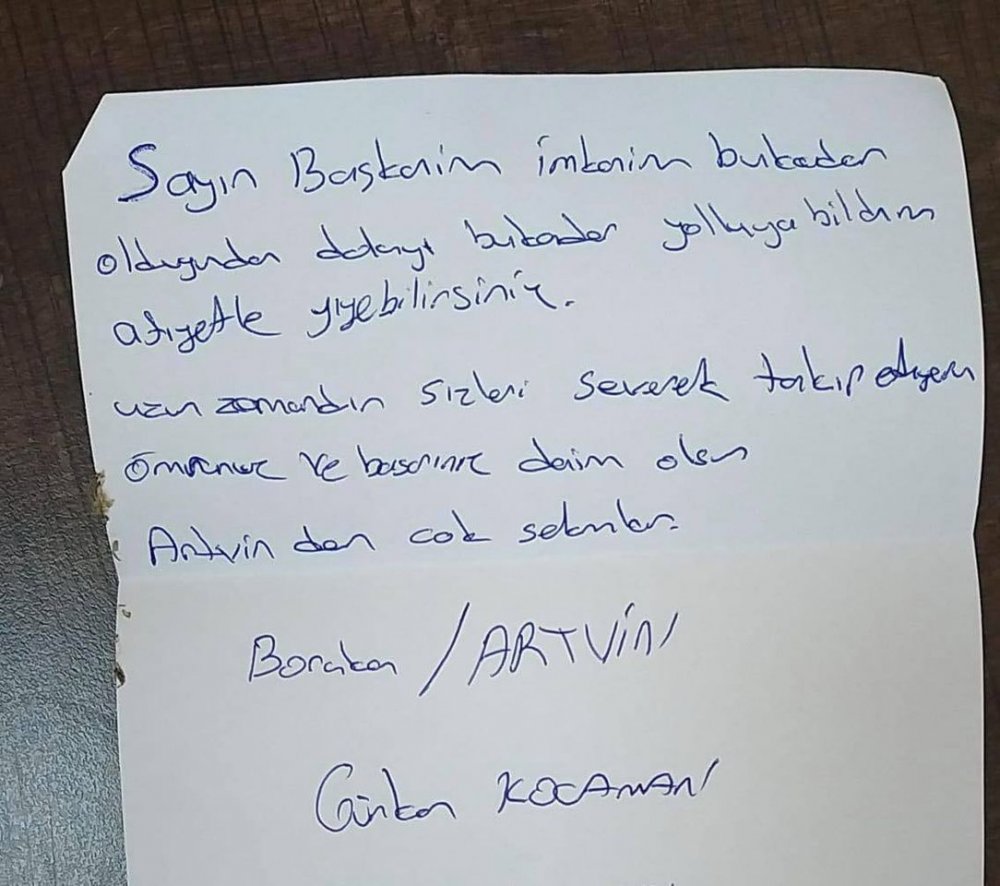 Sayın Başkanim imkanim bukadar
olduğundan dolayı bukadar yollıyabildim
afiyetle yiyebilirsiniz.
uzun zamandın sizleri severek takip ediyorum
ömrünüz ve başarınız daim olsun
Artvin den cok selamlar.
Borcka / ARTVİN
Gürkan KOCAMAN